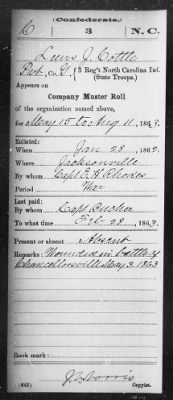 (Confederate.)
C 3 N.C.
Lewis J. Cottle
Pvt, Co. G, 3 Reg't North Carolina Inf.
(State Troops.)
Appears on
Company Muster Roll
of the organization named above,
for May 15 to Aug 11, 1863.
Enlisted:
When Jan 28, 1862.
Where Jacksonville
By whom Capt E. H. Rhodes
Period War
Last paid:
By whom Capt
To what time Feb 28, 1863.
Present or absent Absent
Remarks: Wounded in battle of
Chancellorsville May 3, 1863
Book mark:
(642)
Copyist.